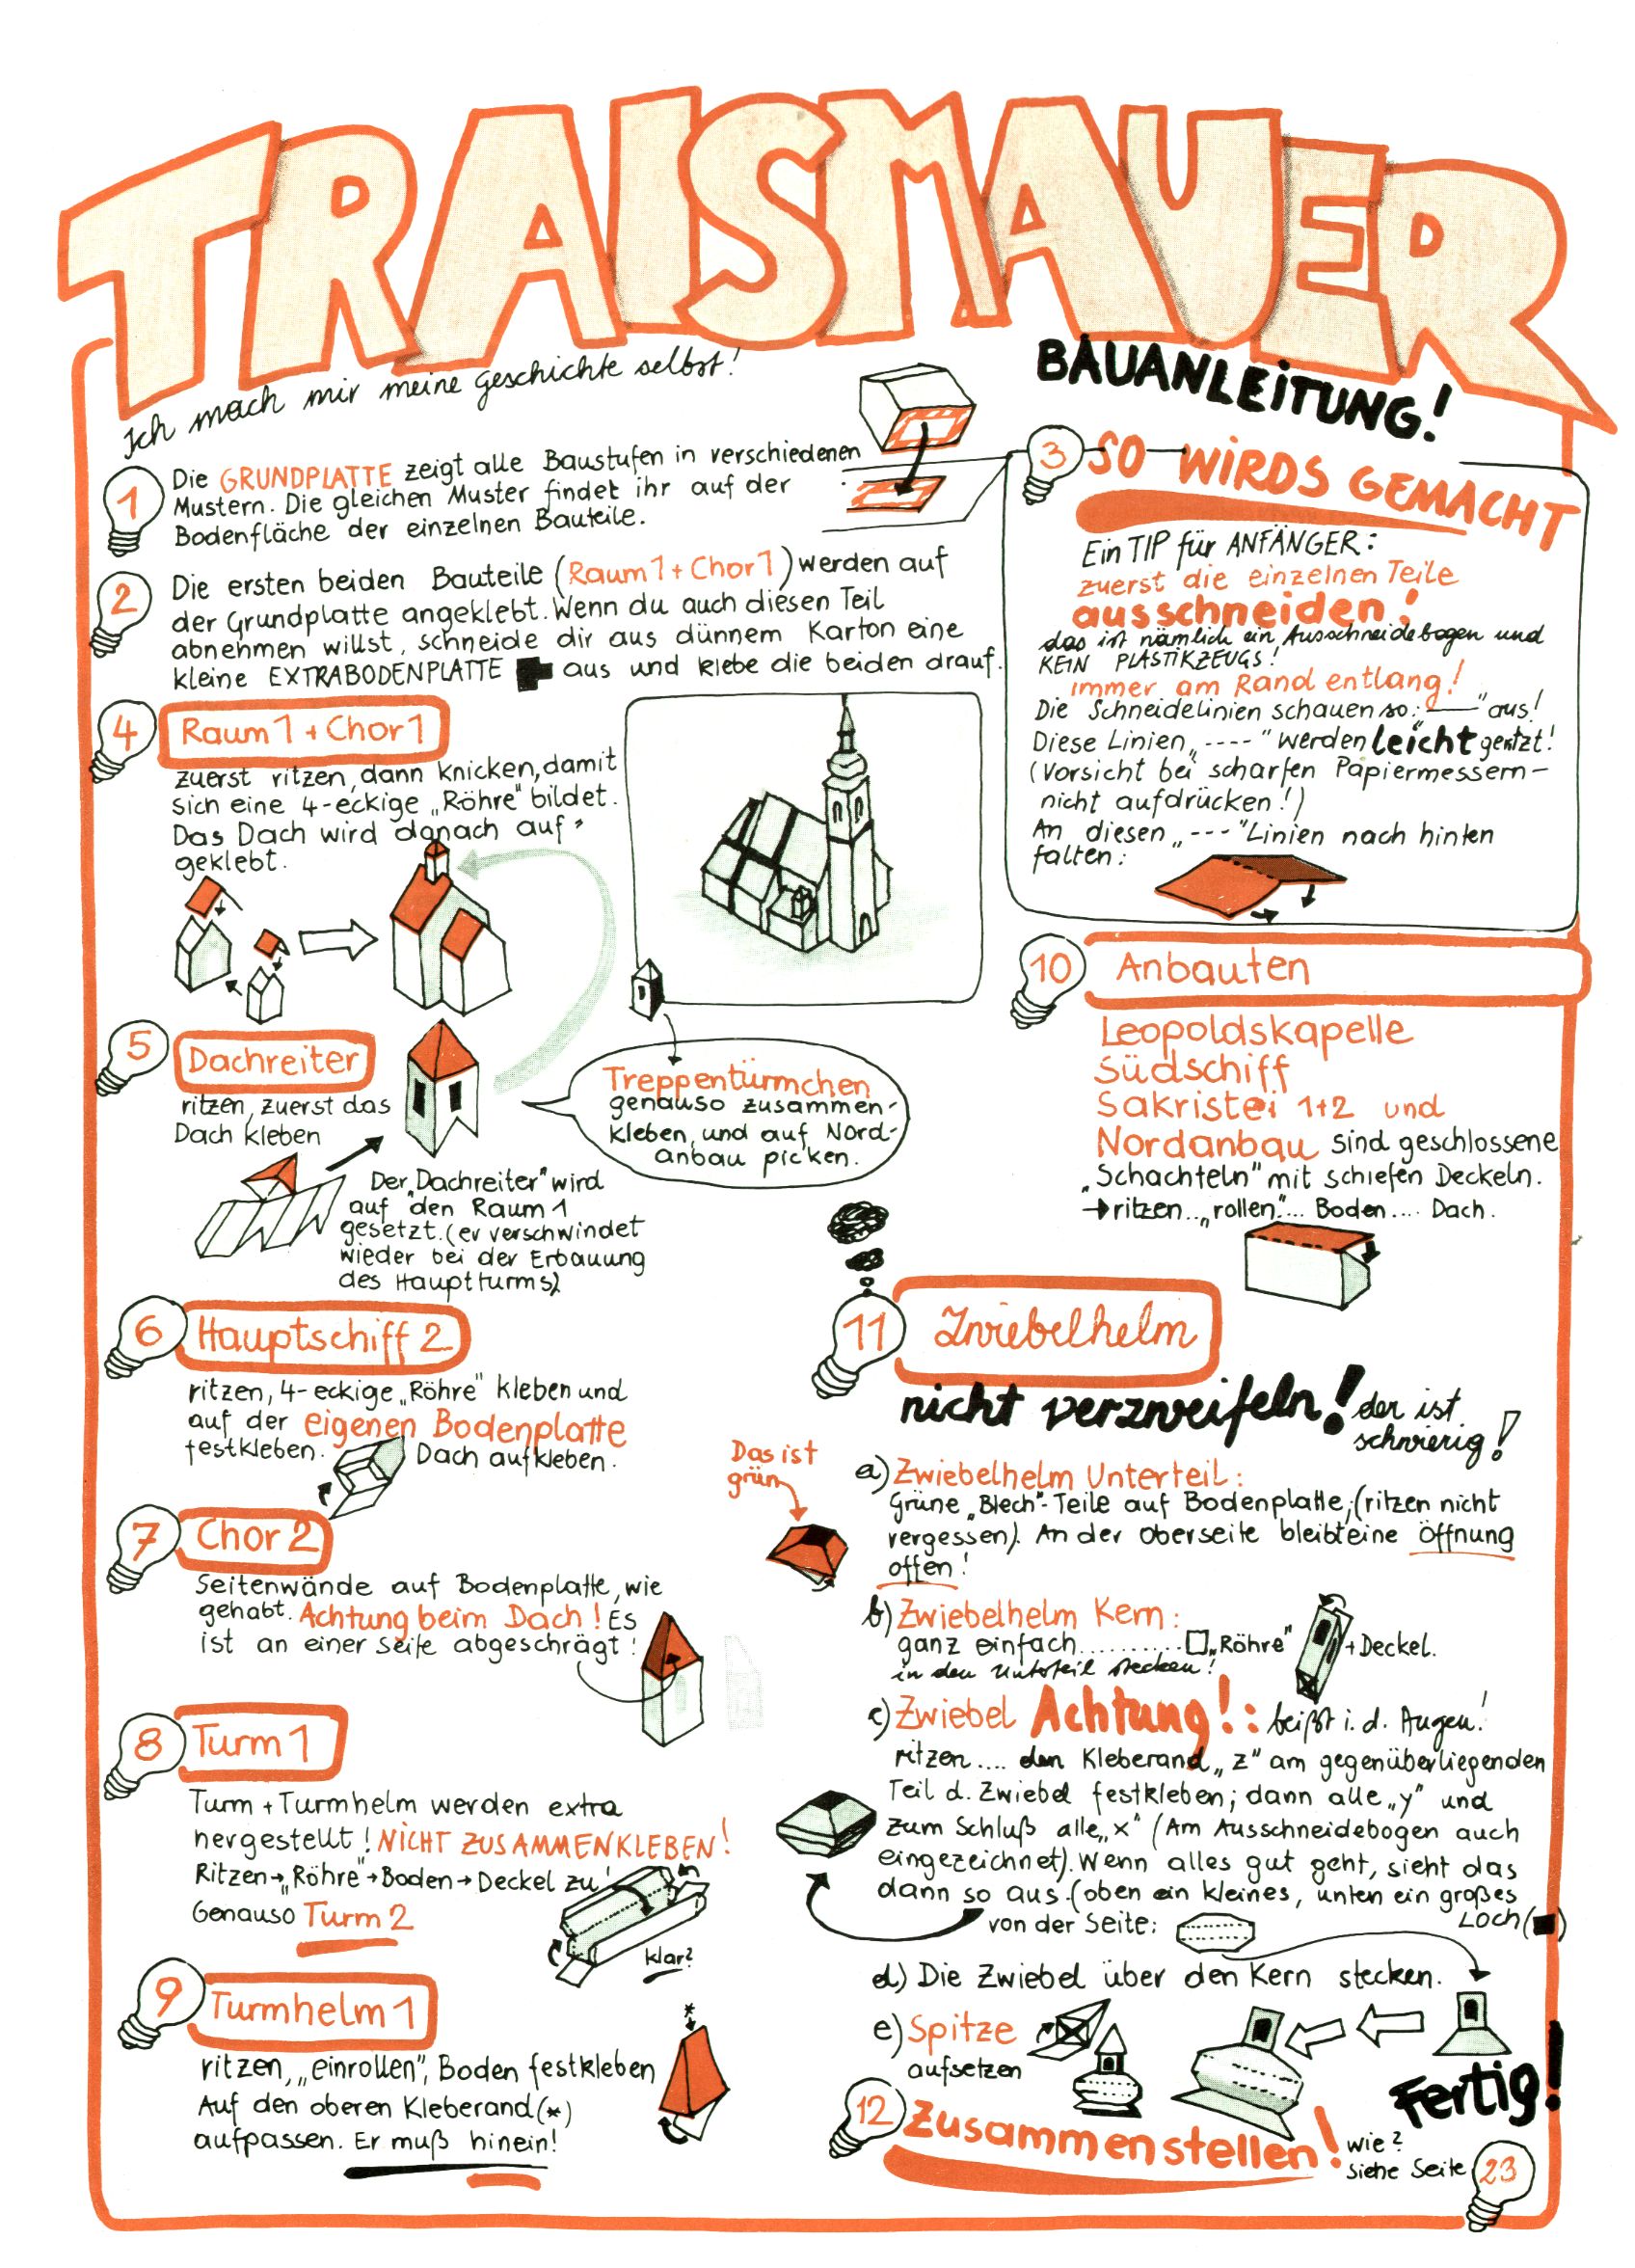 TRAISMAUER
Ich mach mir meine Geschichte selbst!
BAUANLEITUNG!
1
Die GRUNDPLATTE zeigt alle Baustufen in verschiedenen
Mustern. Die gleichen Muster findet ihr auf der
Bodenfläche der einzelnen Bauteile.
2
Die ersten beiden Bauteile (Raum 1 + Chor 1) werden auf
der Grundplatte angeklebt. Wenn du auch diesen Teil
abnehmen willst, schneide dir aus dünnem Karton eine
kleine EXTRABODENPLATTE aus und klebe die beiden drauf.
3 SO WIRDS GEMACHT
Ein TIP für ANFÄNGER:
zuerst die einzelnen Teile
ausschneiden!
das ist nämlich ein Ausschneidebogen und
KEIN PLASTIKZEUGS!
immer am Rand entlang!
Die Schneidelinien schauen so: „——" aus!
Diese Linien „----" werden leicht geritzt!
(Vorsicht bei scharfen Papiermessern-
nicht aufdrücken!)
An diesen „---" Linien nach hinten
falten:
4 Raum 1 + Chor 1
zuerst ritzen, dann knicken, damit
sich eine 4-eckige „Röhre" bildet.
Das Dach wird danach auf-
geklebt.
5 Dachreiter
ritzen, zuerst das
Dach kleben
Der „Dachreiter" wird
auf den Raum 1
gesetzt. (er verschwindet
wieder bei der Erbauung
des Hauptturms)
Treppentürmchen
genauso zusammen-
kleben, und auf Nord-
anbau picken.
6 Hauptschiff 2
ritzen, 4-eckige „Röhre" kleben und
auf der eigenen Bodenplatte
festkleben. Dach aufkleben.
7 Chor 2
Seitenwände auf Bodenplatte, wie
gehabt. Achtung beim Dach! Es
ist an einer Seite abgeschrägt!
8 Turm 1
Turm + Turmhelm werden extra
hergestellt! NICHT ZUSAMMENKLEBEN!
Ritzen→„Röhre"→Boden→Deckel zu!
Genauso Turm 2
klar?
9 Turmhelm 1
ritzen, „einrollen", Boden festkleben
Auf den oberen Kleberand (*)
aufpassen. Er muß hinein!
*
10 Anbauten
Leopoldskapelle
Südschiff
Sakristei 1+2 und
Nordanbau sind geschlossene
„Schachteln" mit schiefen Deckeln.
→ritzen...„rollen"... Boden.... Dach.
11 Zwiebelhelm
nicht verzweifeln! der ist
schwierig!
Das ist
grün
a) Zwiebelhelm Unterteil:
Grüne „Blech"-Teile auf Bodenplatte, (ritzen nicht
vergessen). An der Oberseite bleibt eine Öffnung
offen!
b) Zwiebelhelm Kern:
ganz einfach.......... „Röhre" + Deckel.
in den Unterteil stecken!
c) Zwiebel Achtung!: beißt i. d. Augen!
ritzen.... den Kleberand „z" am gegenüberliegenden
Teil d. Zwiebel festkleben; dann alle „y" und
zum Schluß alle „x" (Am Ausschneidebogen auch
eingezeichnet). Wenn alles gut geht, sieht das
dann so aus. (oben ein kleines, unten ein großes
Loch (■)
von der Seite:
d) Die Zwiebel über den Kern stecken.
e) Spitze
aufsetzen
Fertig!
12 Zusammenstellen!
wie?
siehe Seite 23